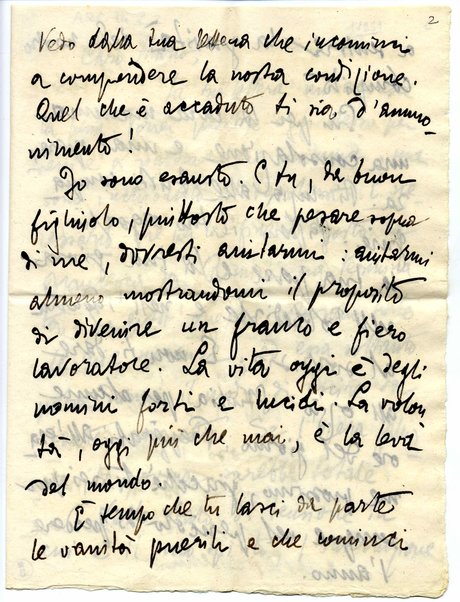 2
Vedo dalla tua lettera che incominci
a comprendere la nostra condizione.
Quel che è accaduto ti sia d'ammo-
nimento!
Io sono esausto. E tu, da buon
figliuolo, piuttosto che pesare sopra
di me, dovresti aiutarmi: aiutarmi
almeno mostrandomi il proposito
di divenire un franco e fiero
lavoratore. La vita oggi è degli
uomini forti e lucidi. La volon
tà, oggi più che mai, è la leva
del mondo.
È tempo che tu lasci da parte
le vanità puerili e che cominci